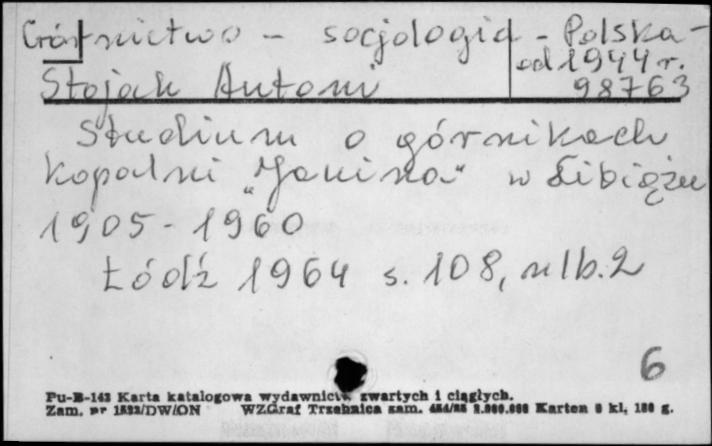 Górnictwo - socjologia - Polska -
od 1944 r.
Stojak Antoni 98763
Studium o górnikach
kopalni "Janina" w Libiążu
1905-1960
Łódź 1964 s. 108, nlb. 2
6
Pu-B-143 Karta katalogowa wydawnictw zwartych i ciągłych.
Zam. nr 1532/DW/ON WZGraf Trzebnica zam. Karton kl,